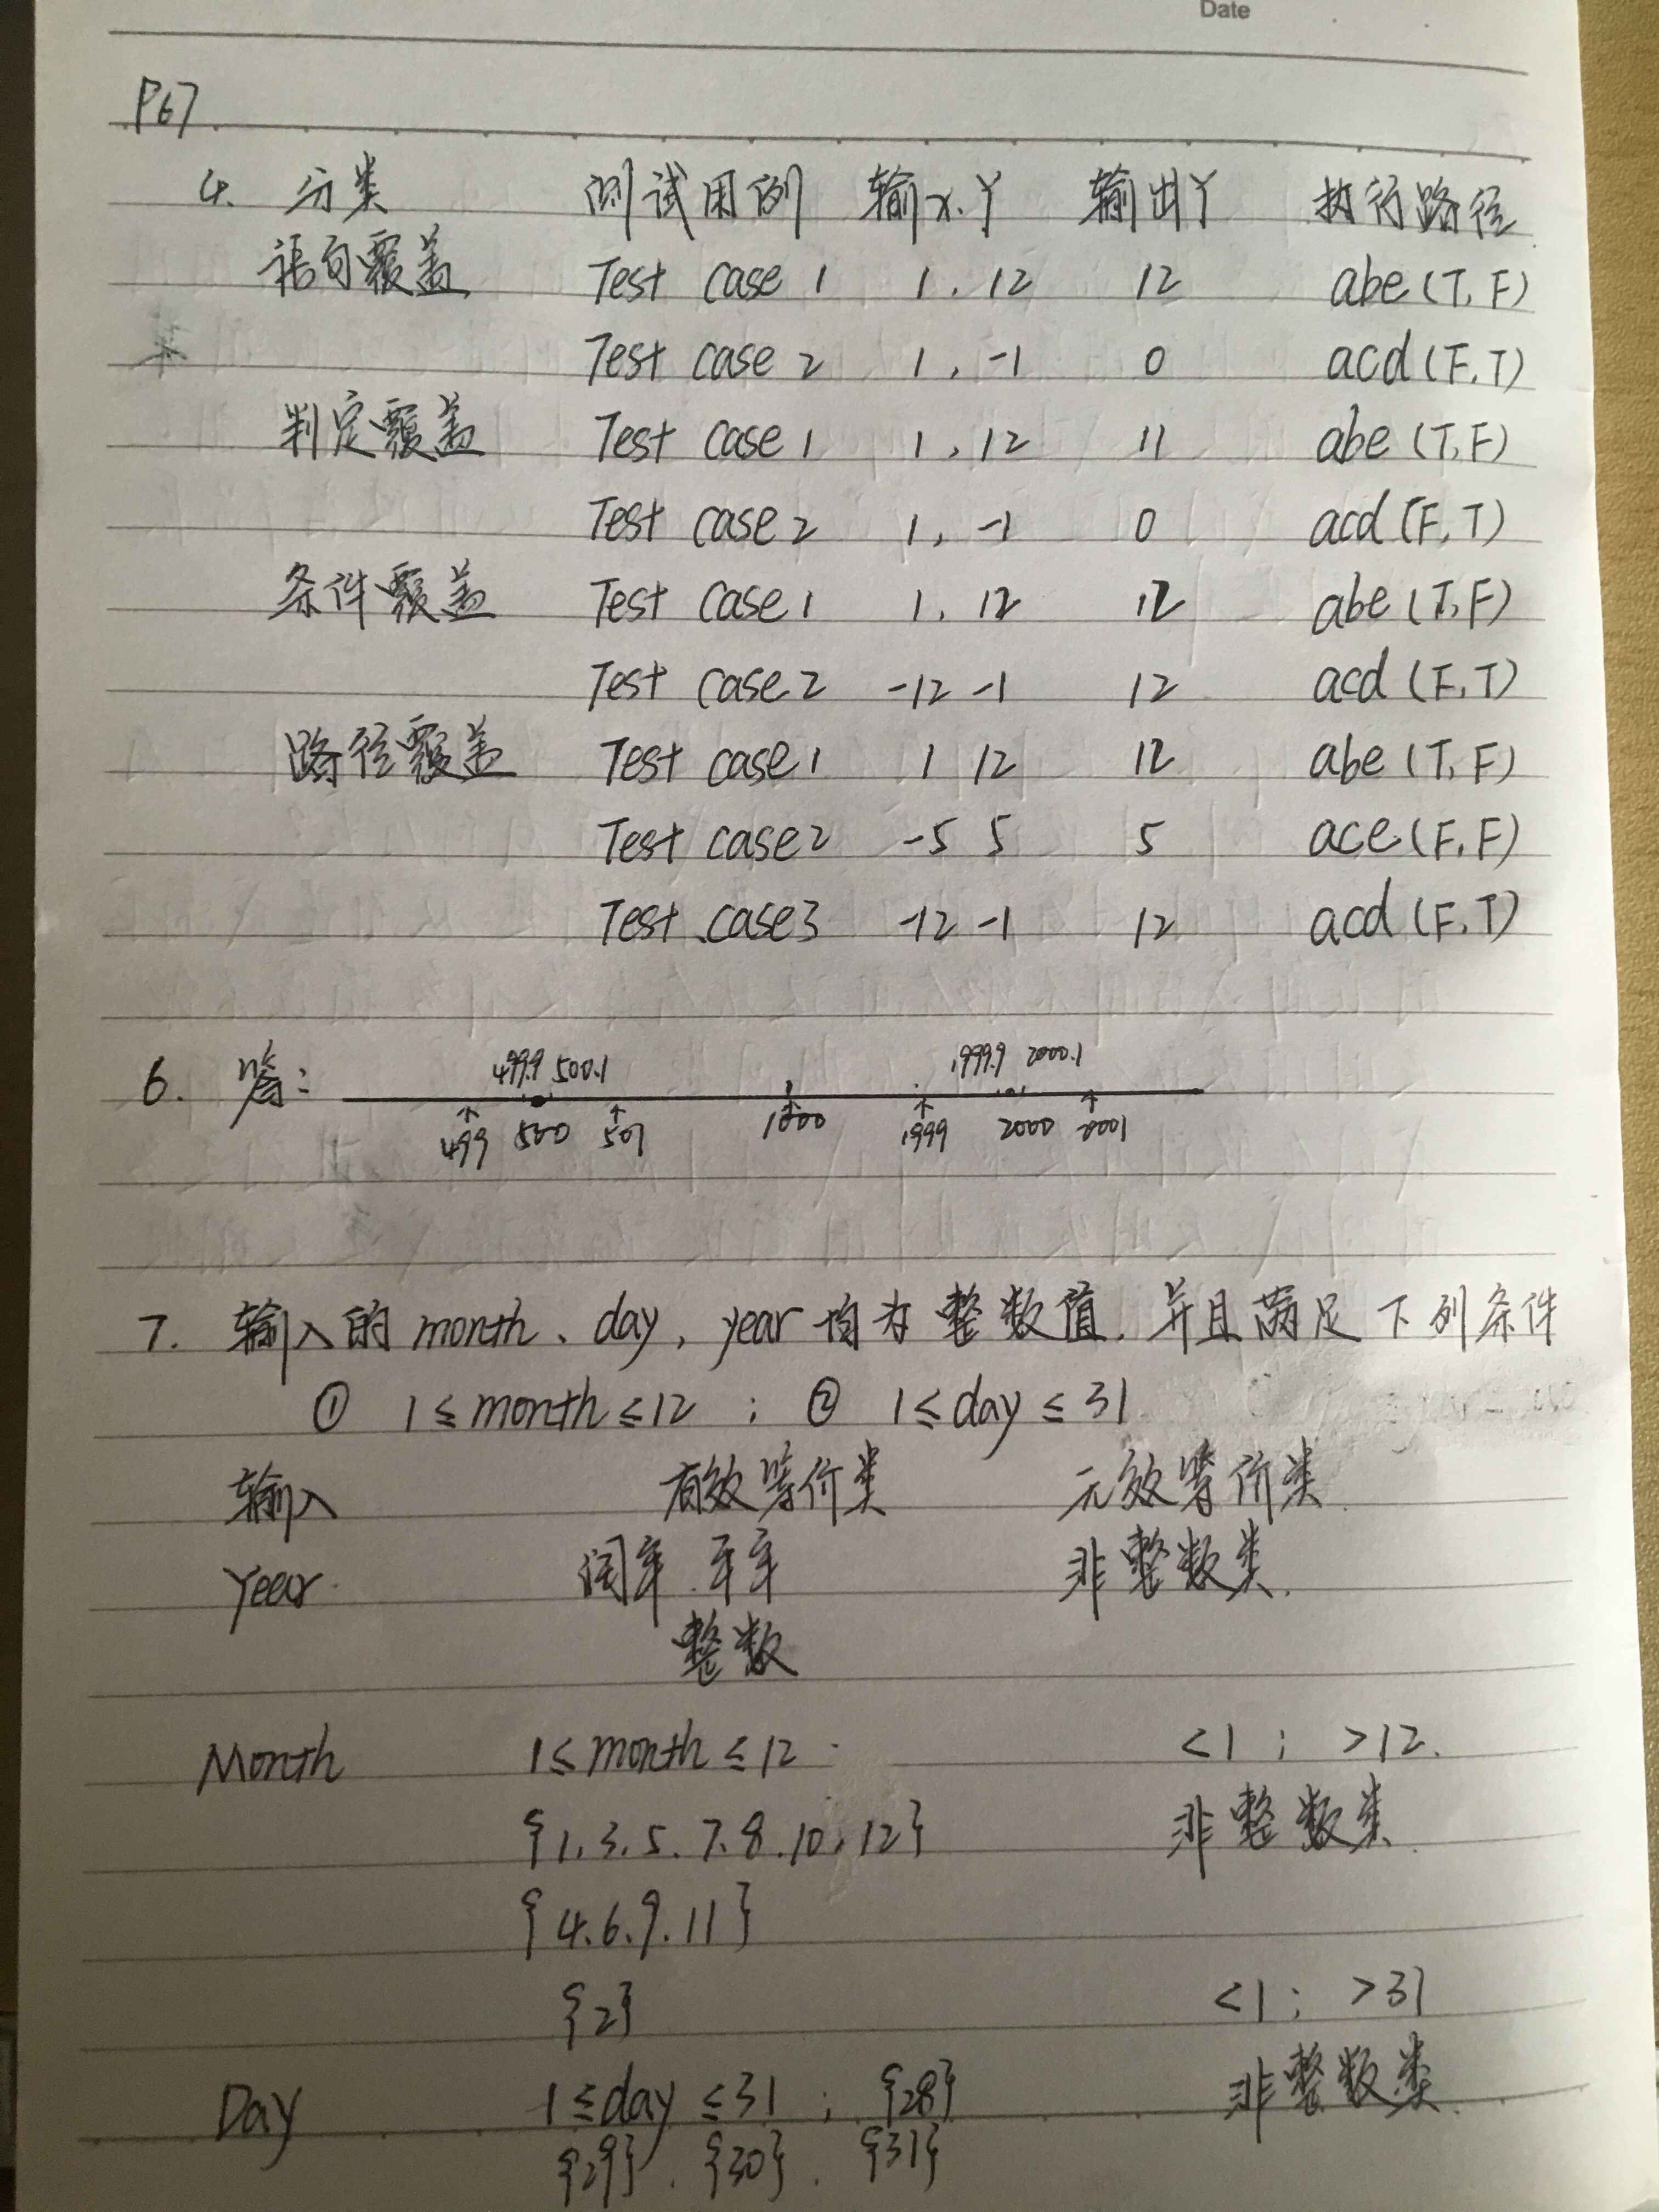 Date
P67
4. 分类 测试用例 输x.Y 输出Y 执行路径
语句覆盖 Test case 1 1, 12 12 abe (T, F)
Test case 2 1, -1 0 acd (F, T)
判定覆盖 Test case 1 1, 12 11 abe (T, F)
Test case 2 1, -1 0 acd (F, T)
条件覆盖 Test case 1 1, 12 12 abe (T, F)
Test case 2 -12 -1 12 acd (F, T)
路径覆盖 Test case 1 1 12 12 abe (T, F)
Test case 2 -5 5 5 ace (F, F)
Test case 3 -12 -1 12 acd (F, T)
499.9 500.1 1999.9 2000.1
6. 答:
499 500 501 1000 1999 2000 2001
7. 输入的 month、day, year 均为整数值, 并且满足下列条件
① 1≤month≤12 ; ② 1≤day≤31
输入 有效等价类 无效等价类
year 闰年. 平年 非整数类.
整数
Month 1≤month≤12 <1 ; >12.
{1.3.5.7.8.10.12} 非整数类.
{4.6.9.11}
{2} <1 ; >31
Day 1≤day≤31 ; {28} 非整数类.
{29}. {30}. {31}